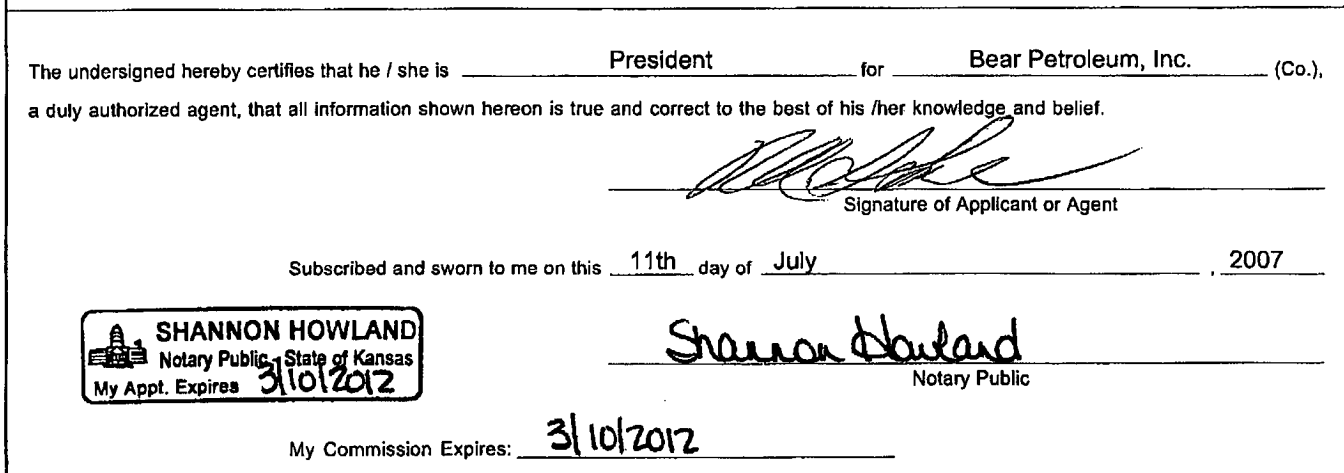 The undersigned hereby certifies that he / she is President for Bear Petroleum, Inc. (Co.),
a duly authorized agent, that all information shown hereon is true and correct to the best of his /her knowledge and belief.
Signature of Applicant or Agent
Subscribed and sworn to me on this 11th day of July , 2007
SHANNON HOWLAND
Notary Public - State of Kansas
My Appt. Expires 3/10/2012
Shannon Howland
Notary Public
My Commission Expires: 3/10/2012